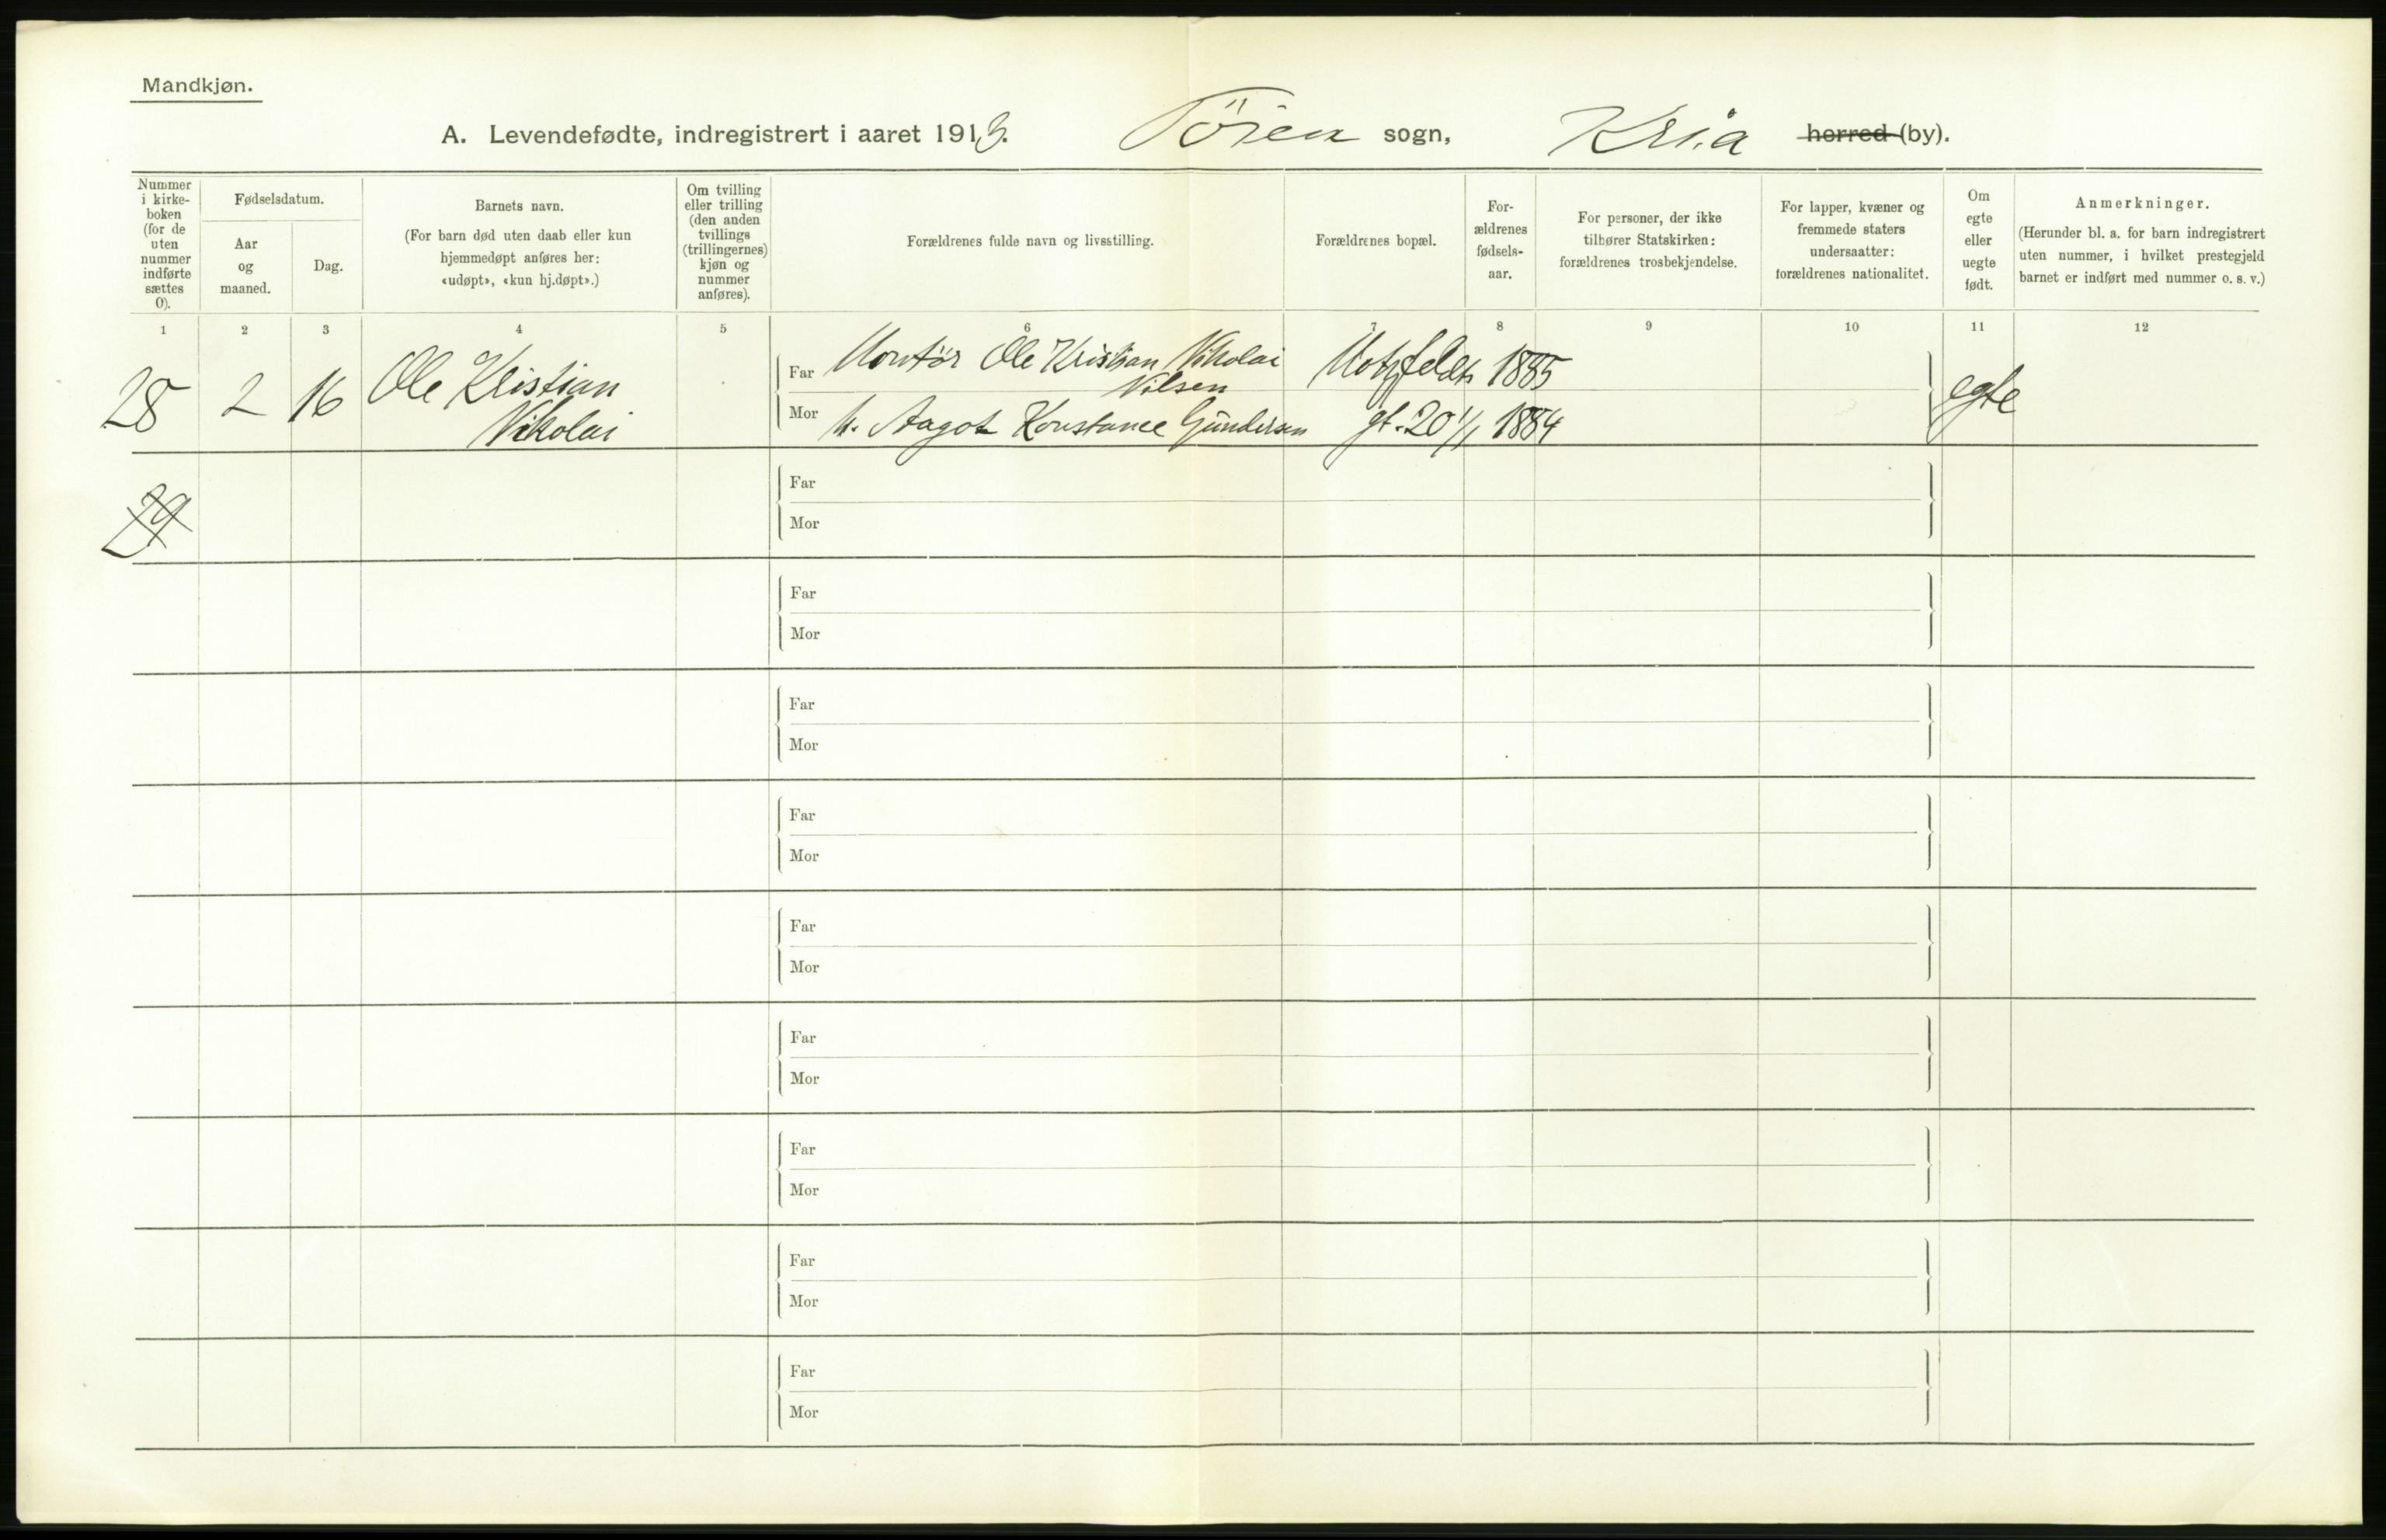 Mandkjøn.
A. Levendefødte, indregistrert i aaret 1913. Töien sogn, Kria herred (by).
Nummer i kirke- boken (for de uten nummer indførte sættes 0).
Fødselsdatum.
Aar og maaned.
Dag.
Barnets navn.
(For barn død uten daab eller kun hjemmedøpt anføres her: «udøpt», «kun hj.døpt».)
Om tvilling eller trilling (den anden tvillings (trillingernes) kjøn og nummer anføres).
Forældrenes fulde navn og livsstilling.
Forældrenes bopæl.
For- ældrenes fødsels- aar.
For personer, der ikke tilhører Statskirken: forældrenes trosbekjendelse.
For lapper, kvæner og fremmede staters undersaatter: forældrenes nationalitet.
Om egte eller uegte født.
Anmerkninger.
(Herunder bl. a. for barn indregistrert uten nummer, i hvilket prestegjeld barnet er indført med nummer o. s. v.)
1 2 3 4 5 6 7 8 9 10 11 12
28 2 16 Ole Kristian Nikolai
Far Montør Ole Kristian Nikolai Nilsen Motzfeldts 1885
Mor h. Aagot Konstance Gundersen gt. 20 1/1 1884
egte
29
Far
Mor
Far
Mor
Far
Mor
Far
Mor
Far
Mor
Far
Mor
Far
Mor
Far
Mor
Far
Mor